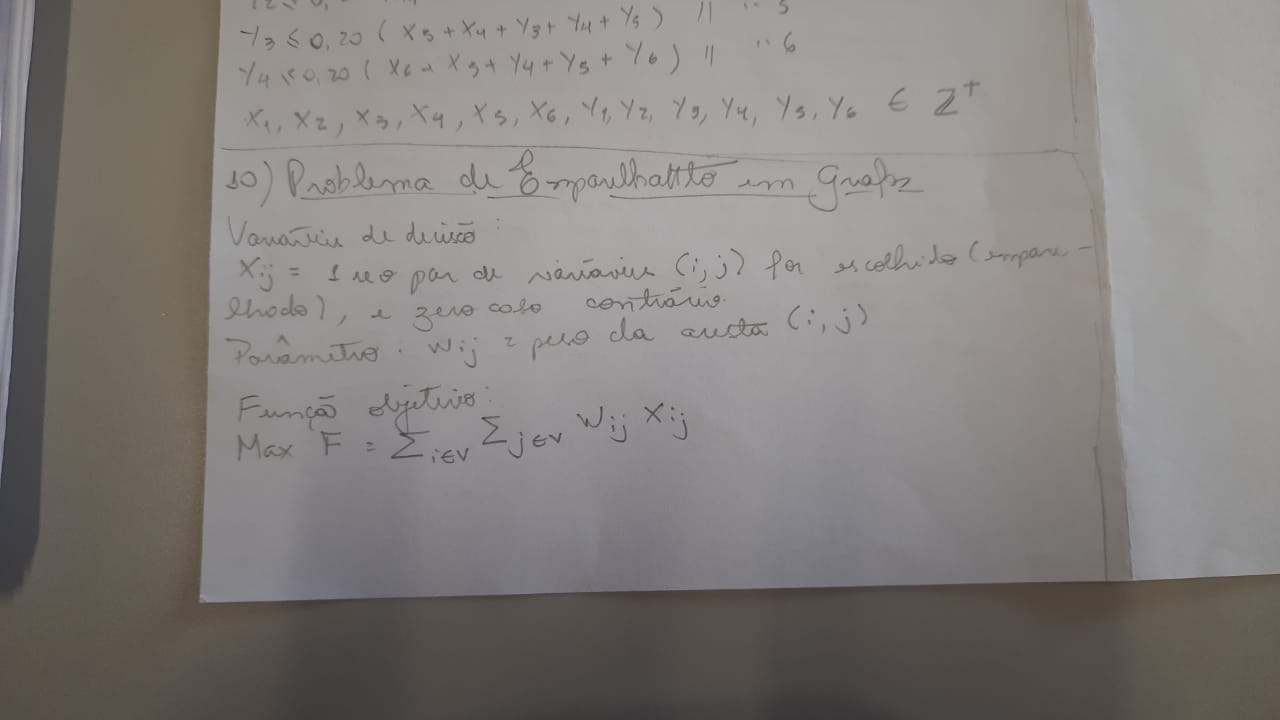 Y3 ≤ 0,20 ( X3 + X4 + Y3 + Y4 + Y5 ) || " 5
Y4 ≤ 0,20 ( X6 + X5 + Y4 + Y5 + Y6 ) || " 6
X1, X2, X3, X4, X5, X6, Y1, Y2, Y3, Y4, Y5, Y6 ∈ Z+
10) Problema de Emparelhamento em Grafos
Variáveis de decisão:
Xij = 1 se o par de variáveis (i,j) for escolhido (empare-
lhado), e zero caso contrário.
Parâmetro: Wij = peso da aresta (i,j)
Função objetivo:
Max F = Σi∈V Σj∈V Wij Xij